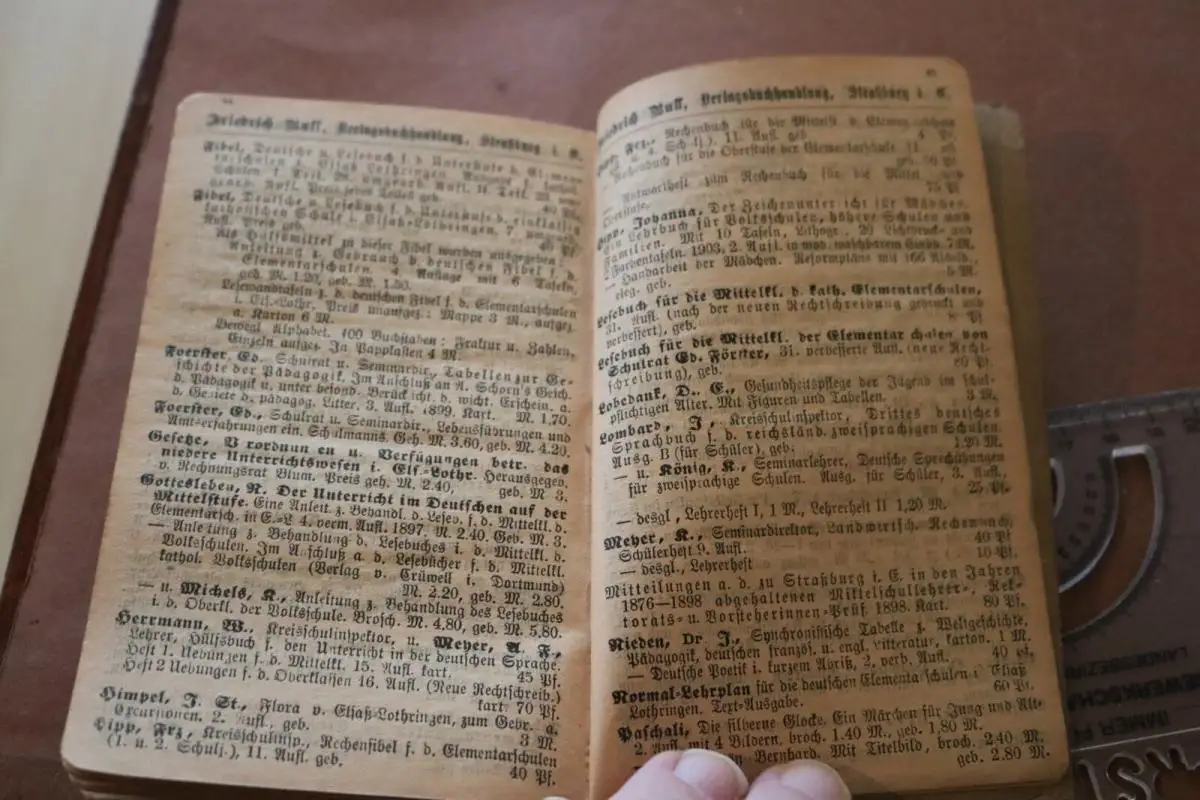 Friedrich Bull, Verlagsbuchhandlung, Straßburg i. E.
Fibel, Deutsche u. Lesebuch f. d. Unterstufe d. Elemen-
tarschulen i. Elsaß-Lothringen.
Fibel, Deutsche u. Lesebuch f. d. Unterstufe d. einklassig
katholischen Schule i. Elsaß-Lothringen, 7
Aufl. Preis geb. 40 Pf.
Als Hülfsmittel zu dieser Fibel wurden ausgegeben:
Anleitung z. Gebrauch d. deutschen Fibel f. d.
Elementarschulen. 4 Auflage mit 6 Tafeln,
geh. M. 1.20, geb. M. 1.50.
Lesewandtafeln z. d. deutschen Fibel f. d. Elementarschulen
i. Els.-Lothr. Preis unaufgez.: Mappe 3 M., aufgez.
a. Karton 6 M.
Bewegl. Alphabet. 400 Buchstaben: Fraktur u. Zahlen,
Einzeln aufgez. In Pappkasten 4 M.
Foerster, Ed., Schulrat u. Seminardir., Tabellen zur Ge-
schichte der Pädagogik. Im Anschluß an A. Schorn's Gesch.
d. Pädagogik u. unter besond. Berücksicht. d. wicht. Erschein. a.
d. Gebiete d. pädagog. Litter. 3. Aufl. 1899. Kart. M. 1.70.
Foerster, Ed., Schulrat u. Seminardir., Lebensführungen und
Amtserfahrungen ein. Schulmanns. Geh. M. 3.60, geb. M. 4.20.
Gesetze, V rordnun en u. Verfügungen betr. das
niedere Unterrichtswesen i. Els.-Lothr. Herausgegeb.
v. Rechnungsrat Blum. Preis geh. M. 2.40, geb. M. 3.
Gottesleben, N. Der Unterricht im Deutschen auf der
Mittelstufe. Eine Anleit. z. Behandl. d. Leseb. f. d. Mittelkl. d.
Elementarsch. in E.-L. 4. verm. Aufl. 1897. M. 2.40. Geb. M. 3.
— Anleitung z. Behandlung d. Lesebuches i. d. Mittelkl. d.
Volksschulen. Im Anschluß a. d. Lesebücher f. d. Mittelkl.
kathol. Volksschulen (Verlag v. Crüwell i. Dortmund)
M. 2.20, geb. M. 2.80.
— u. Michels, K., Anleitung z. Behandlung des Lesebuches
i. d. Oberkl. der Volksschule. Brosch. M. 4.80, geb. M. 5.80.
Herrmann, W., Kreisschulinspektor, u. Meyer, A. F.,
Lehrer, Hülfsbuch f. den Unterricht in der deutschen Sprache.
Heft 1. Uebungen f. d. Mittelkl. 15. Aufl. kart. 45 Pf.
Heft 2 Uebungen f. d. Oberklassen 16. Aufl. (Neue Rechtschreib.)
kart. 70 Pf.
Himpel, J. St., Flora v. Elsaß-Lothringen, zum Gebr. a.
Excursionen. 2. Aufl., geb. 3 M.
Hipp, Frz., Kreisschulinsp., Rechenfibel f. d. Elementarschulen
(1. u. 2. Schulj.), 11. Aufl. geb. 40 Pf.
Friedrich Bull, Verlagsbuchhandlung, Straßburg i. E.
Hipp, Frz., Rechenbuch für die Mittelst. d. Elementar
u. 4. Schulj.). 11. Aufl. geb.
Rechenbuch für die Oberstufe der Elementarschule
— Antwortheft zum Rechenbuch für die Mittel und
Oberstufe. 75 Pf.
Hipp, Johanna, Der Zeichenunterricht für Mädchen.
Ein Lehrbuch für Volksschulen, höhere Schulen und
Familien. Mit 10 Tafeln, Lithogr., 20 Lichtdruck- und
Farbentafeln. 1903, 2. Aufl. in mod. waschbarem Einbd. 7 M.
— Handarbeit der Mädchen. Reformpläne mit 166 Abbild.,
eleg. geb. 5 M.
Lesebuch für die Mittelkl. d. kath. Elementarschulen,
31. Aufl. (nach der neuen Rechtschreibung gedruckt und
verbessert), geb.
Lesebuch für die Mittelkl. der Elementar chulen von
Schulrat Ed. Förster, 31. verbesserte Aufl. (neue Recht-
schreibung), geb. 60 Pf.
Lobedank, D., E., Gesundheitspflege der Jugend im schul-
pflichtigen Alter. Mit Figuren und Tabellen. 3 M.
Lombard, J., Kreisschulinspektor, Drittes deutsches
Sprachbuch f. d. reichsländ. zweisprachigen Schulen
Ausg. B (für Schüler), geb. 1.20 M.
— u. König, K., Seminarlehrer, Deutsche Sprechübungen
für zweisprachige Schulen. Ausg. für Schüler, 3. Aufl.,
25 Pf.
— desgl., Lehrerheft I, 1 M., Lehrerheft II 1,20 M.
Meyer, K., Seminardirektor, Landwirtsch. Rechenbuch,
Schülerheft 9. Aufl. 40 Pf.
— desgl., Lehrerheft 10 Pf.
Mitteilungen a. d. zu Straßburg i. E. in den Jahren
1876—1898 abgehaltenen Mittelschullehrer-, Rek-
torats- u. Vorsteherinnen-Prüf. 1898. Kart. 80 Pf.
Rieden, Dr. J., Synchronistische Tabelle z. Weltgeschichte,
Pädagogik, deutschen französ. u. engl. Litteratur, karton. 1 M.
— Deutsche Poetik i. kurzem Abriß, 2. verb. Aufl. 40 Pf.
Normal-Lehrplan für die deutschen Elementa schulen i. Elsaß
Lothringen. Text-Ausgabe. 60 Pf.
Paschali, Die silberne Glocke. Ein Märchen für Jung und Alt.
2. Aufl. mit 4 Bildern, broch. 1.40 M., geb. 1,80 M.
Bernhard. Mit Titelbild, broch. 2.40 M.
geb. 2.80 M.